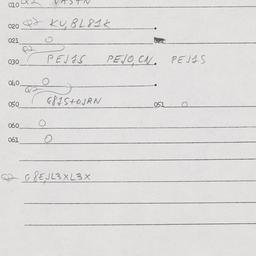 010
020 KU,BL81K
021 O
030 PEJ1S PEJO,CN. PEJ1S
040 O
050 G81S+OJRN 051 O
060 O
061 O
G8EJL3XL3X